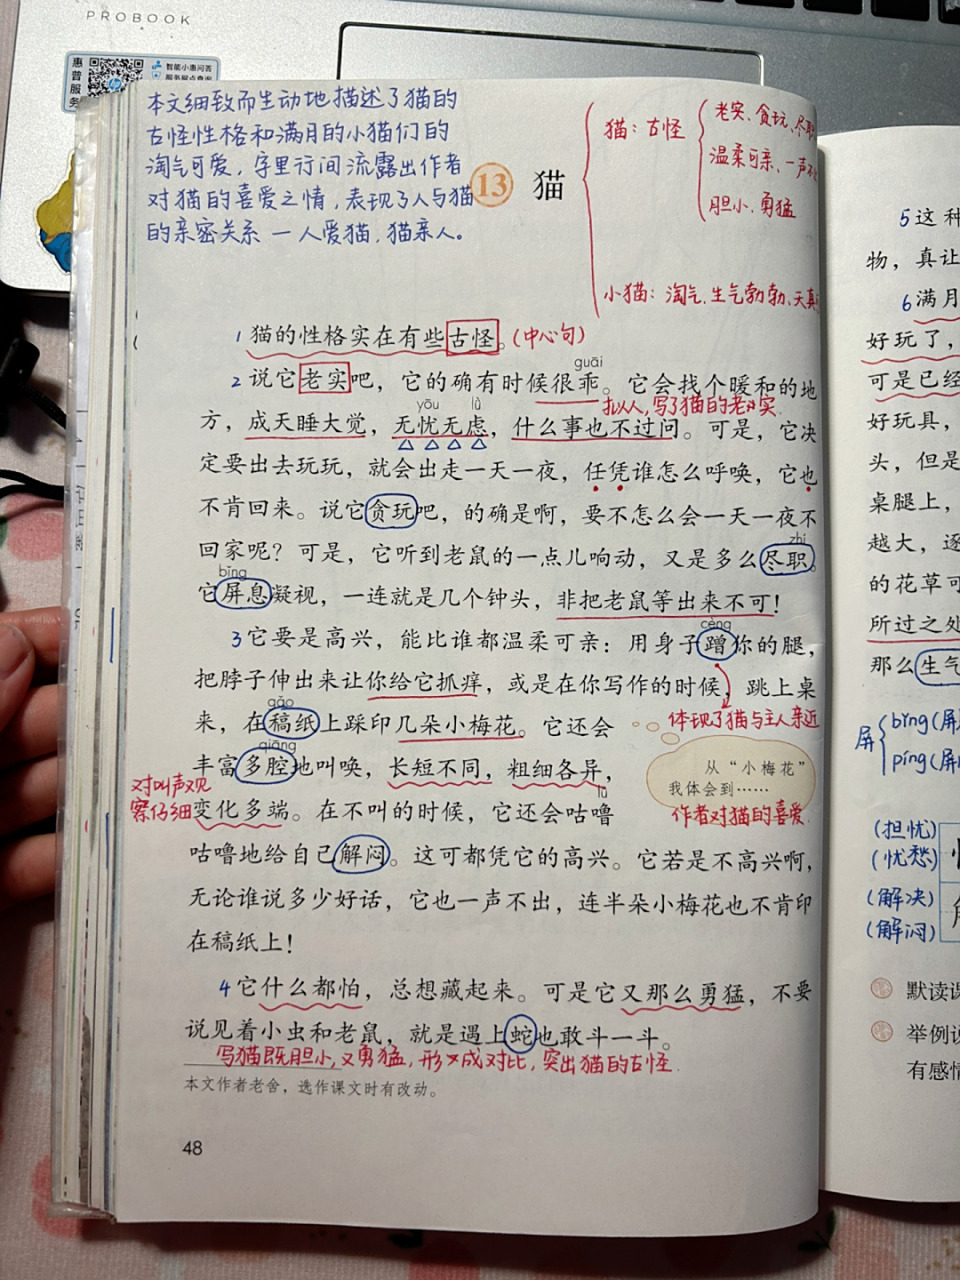 PROBOOK
惠普服务
智能小惠问答
服务网点查询
本文细致而生动地描述了猫的
古怪性格和满月的小猫们的
淘气可爱，字里行间流露出作者
对猫的喜爱之情，表现了人与猫
的亲密关系一人爱猫，猫亲人。
13 猫
猫：古怪
老实、贪玩、尽职
温柔可亲、一声不
胆小、勇猛
小猫：淘气、生气勃勃、天真
1 猫的性格实在有些古怪。(中心句)
guāi
2 说它老实吧，它的确有时候很乖。它会找个暖和的地
拟人，写了猫的老实
yōu lǜ
方，成天睡大觉，无忧无虑，什么事也不过问。可是，它决
定要出去玩玩，就会出走一天一夜，任凭谁怎么呼唤，它也
不肯回来。说它贪玩吧，的确是啊，要不怎么会一天一夜不
zhí
回家呢？可是，它听到老鼠的一点儿响动，又是多么尽职。
bǐng
它屏息凝视，一连就是几个钟头，非把老鼠等出来不可！
cèng
3 它要是高兴，能比谁都温柔可亲：用身子蹭你的腿，
把脖子伸出来让你给它抓痒，或是在你写作的时候，跳上桌
体现了猫与主人亲近
gǎo
来，在稿纸上踩印几朵小梅花。它还会
qiāng
丰富多腔地叫唤，长短不同，粗细各异，
从“小梅花”
我体会到……
作者对猫的喜爱
对叫声观
察仔细
lū
变化多端。在不叫的时候，它还会咕噜
咕噜地给自己解闷。这可都凭它的高兴。它若是不高兴啊，
无论谁说多少好话，它也一声不出，连半朵小梅花也不肯印
在稿纸上！
4 它什么都怕，总想藏起来。可是它又那么勇猛，不要
说见着小虫和老鼠，就是遇上蛇也敢斗一斗。
写猫既胆小，又勇猛，形成对比，突出猫的古怪
本文作者老舍，选作课文时有改动。
48
5 这种
物，真让
6 满月
好玩了，
可是已经
好玩具，
头，但是
桌腿上，
越大，逐
的花草可
所过之处
那么生气
屏
bǐng(屏
píng(屏
(担忧)
(忧愁)
(解决)
(解闷)
默读课
举例说
有感情